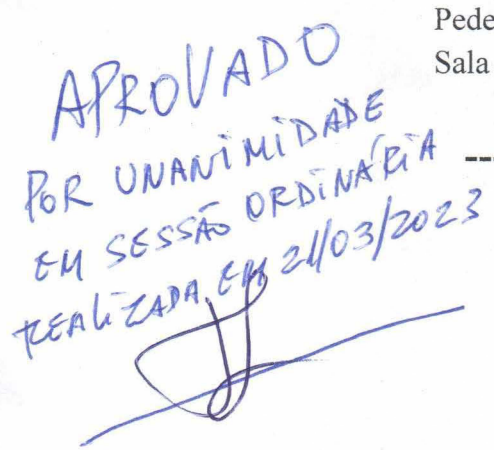 Pede
Sala
APROVADO
POR UNANIMIDADE
EM SESSÃO ORDINÁRIA
REALIZADA EM 21/03/2023